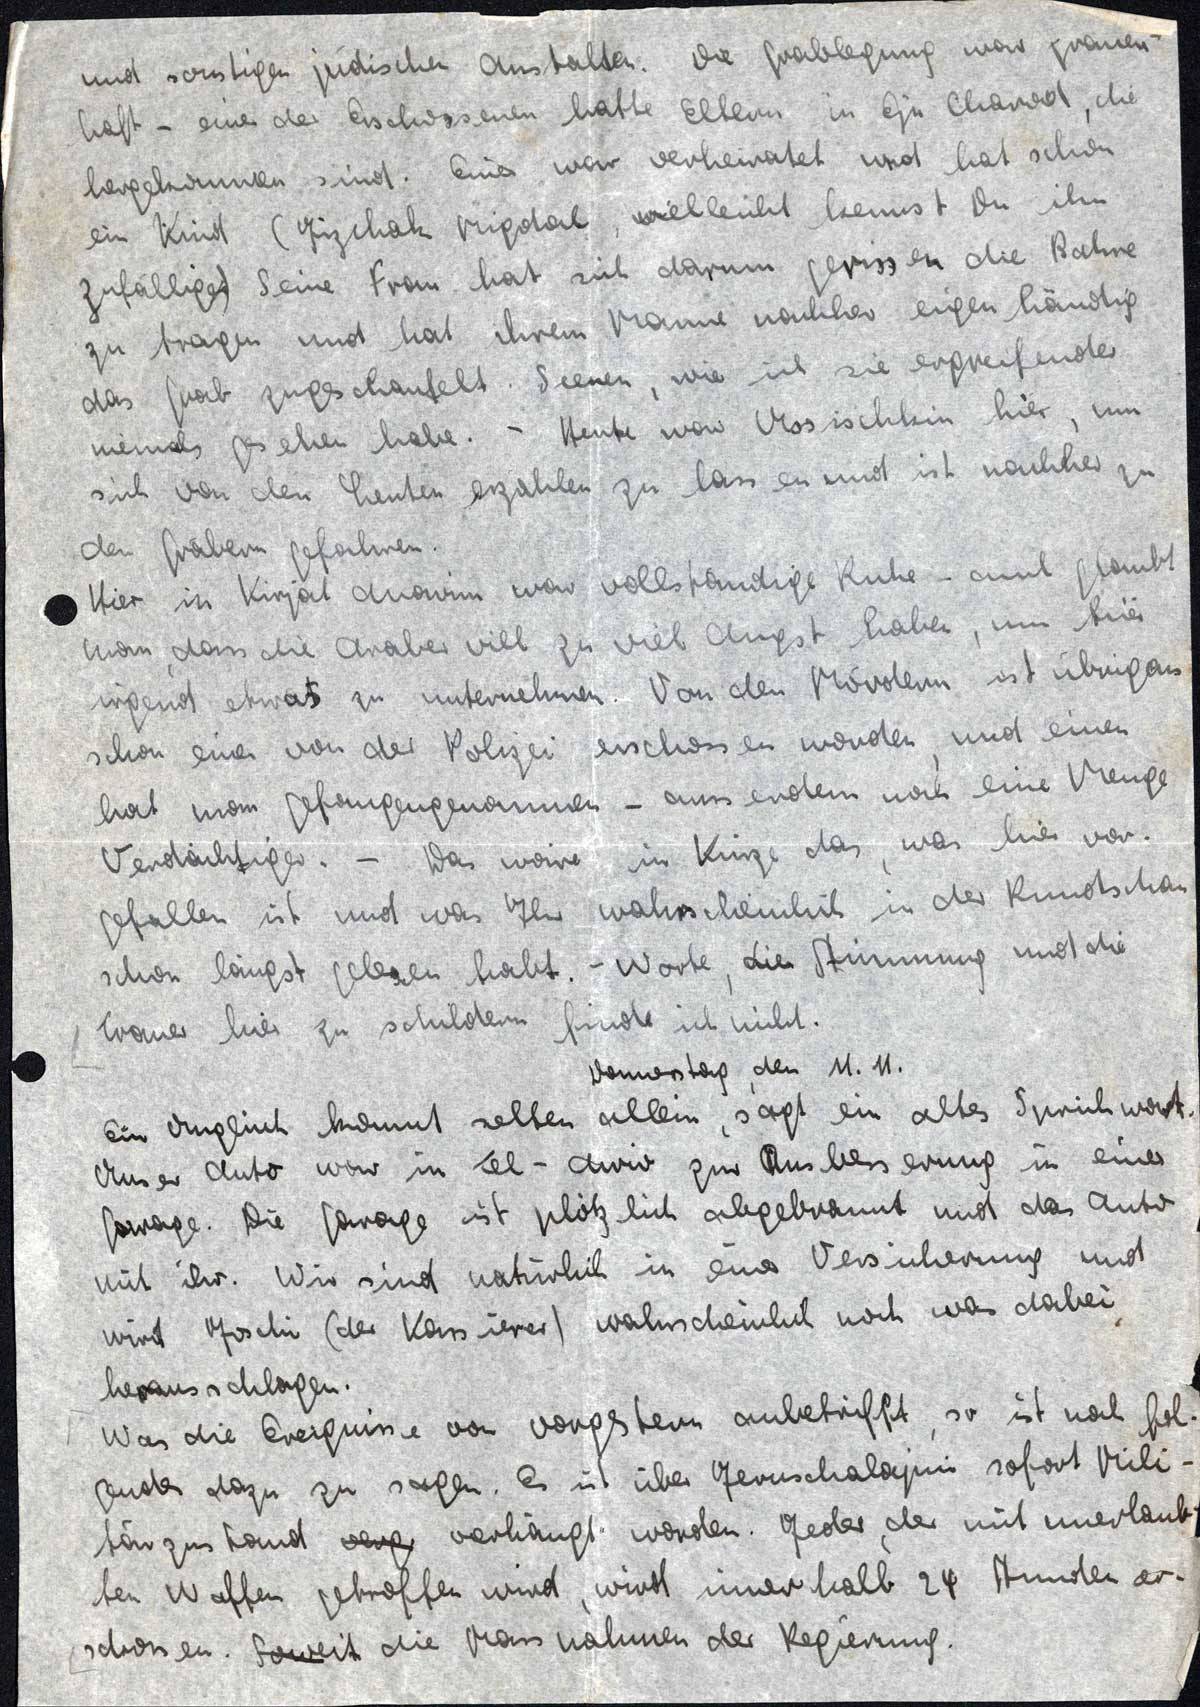 und sonstigen jüdischen Anstalten. Die Grablegung war grauen-
haft - einer der Erschossenen hatte Eltern in Ejn Charod, die
hergekommen sind. Einer war verheiratet und hat schon
ein Kind (Jizchak Migdal, vielleicht kennst Du ihn
zufällig) Seine Frau hat sich darum gerissen die Bahre
zu tragen und hat ihrem Manne nachher eigenhändig
das Grab zugeschaufelt. Scenen, wie ich sie ergreifender
niemals gesehen habe. - Heute war Ussischkin hier, um
sich von den Leuten erzählen zu lassen und ist nachher zu
den Gräbern gefahren.
Hier in Kirjat Anawim war vollständige Ruhe - auch glaubt
man, dass die Araber viel zu viel Angst haben, um hier
irgend etwas zu unternehmen. Von den Mördern ist übrigens
schon einer von der Polizei erschossen worden, und einen
hat man gefangengenommen - ausserdem noch eine Menge
Verdächtiger. - Das wäre in Kürze das, was hier vor-
gefallen ist und was Ihr wahrscheinlich in der Rundschau
schon längst gelesen habt. - Worte, die Stimmung und die
Trauer hier zu schildern finde ich nicht.
Donnerstag, den 11.11.
Ein Unglück kommt selten allein, sagt ein altes Sprichwort.
Unser Auto war in Tel-Awiw zur Ausbesserung in einer
Garage. Die Garage ist plötzlich abgebrannt und das Auto
mit ihr. Wir sind natürlich in einer Versicherung und
wird Joschi (der Kassierer) wahrscheinlich noch was dabei
herausschlagen.
Was die Ereignisse von vorgestern anbetrifft, so ist noch fol-
gendes dazu zu sagen. Es ist über Jeruschalajim sofort Mili-
tärzustand verhängt worden. Jeder, der mit unerlaub-
ten Waffen getroffen wird, wird innerhalb 24 Stunden er-
schossen. Soweit die Massnahmen der Regierung.